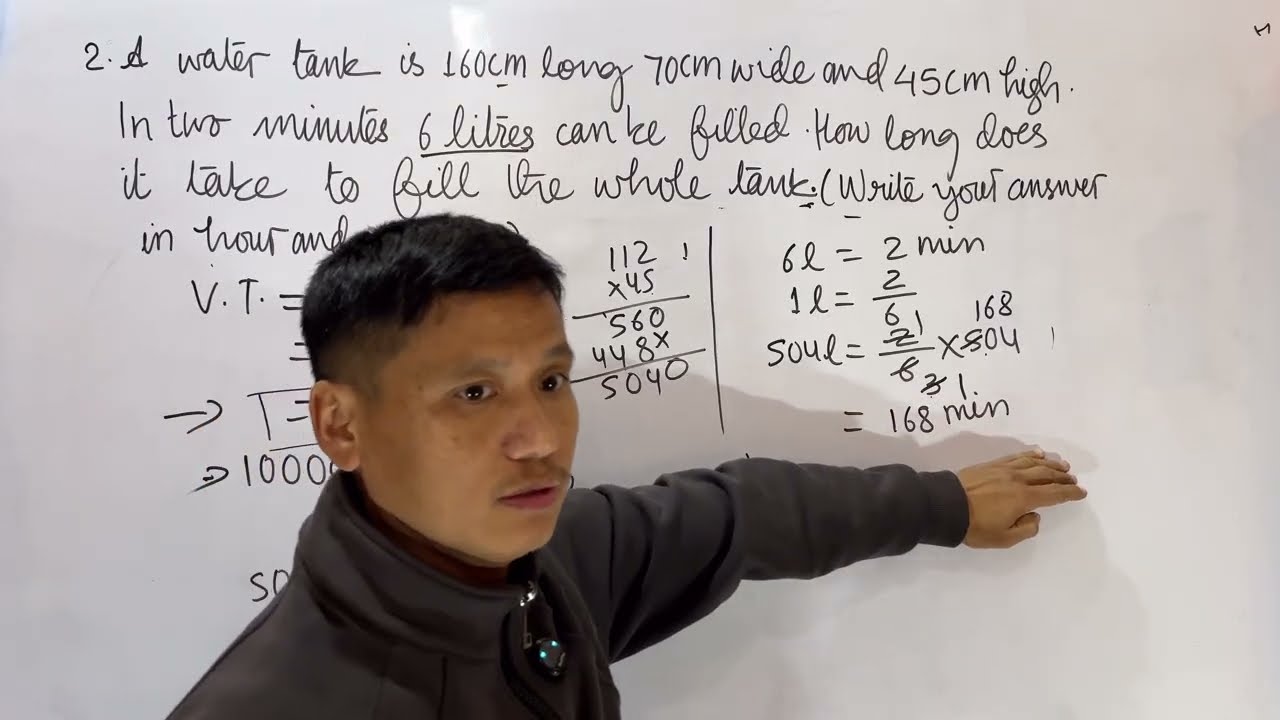 2. A water tank is 160cm long 70cm wide and 45cm high.
In two minutes 6 litres can be filled. How long does
it take to fill the whole tank. (Write your answer
in hour and
V.T. =
=
→ =
⇒ 1000
112
x45
560
448x
5040
6l = 2 min
1l = 2/6
504l = 2/6 x 504 168
3 1
1
= 168 min